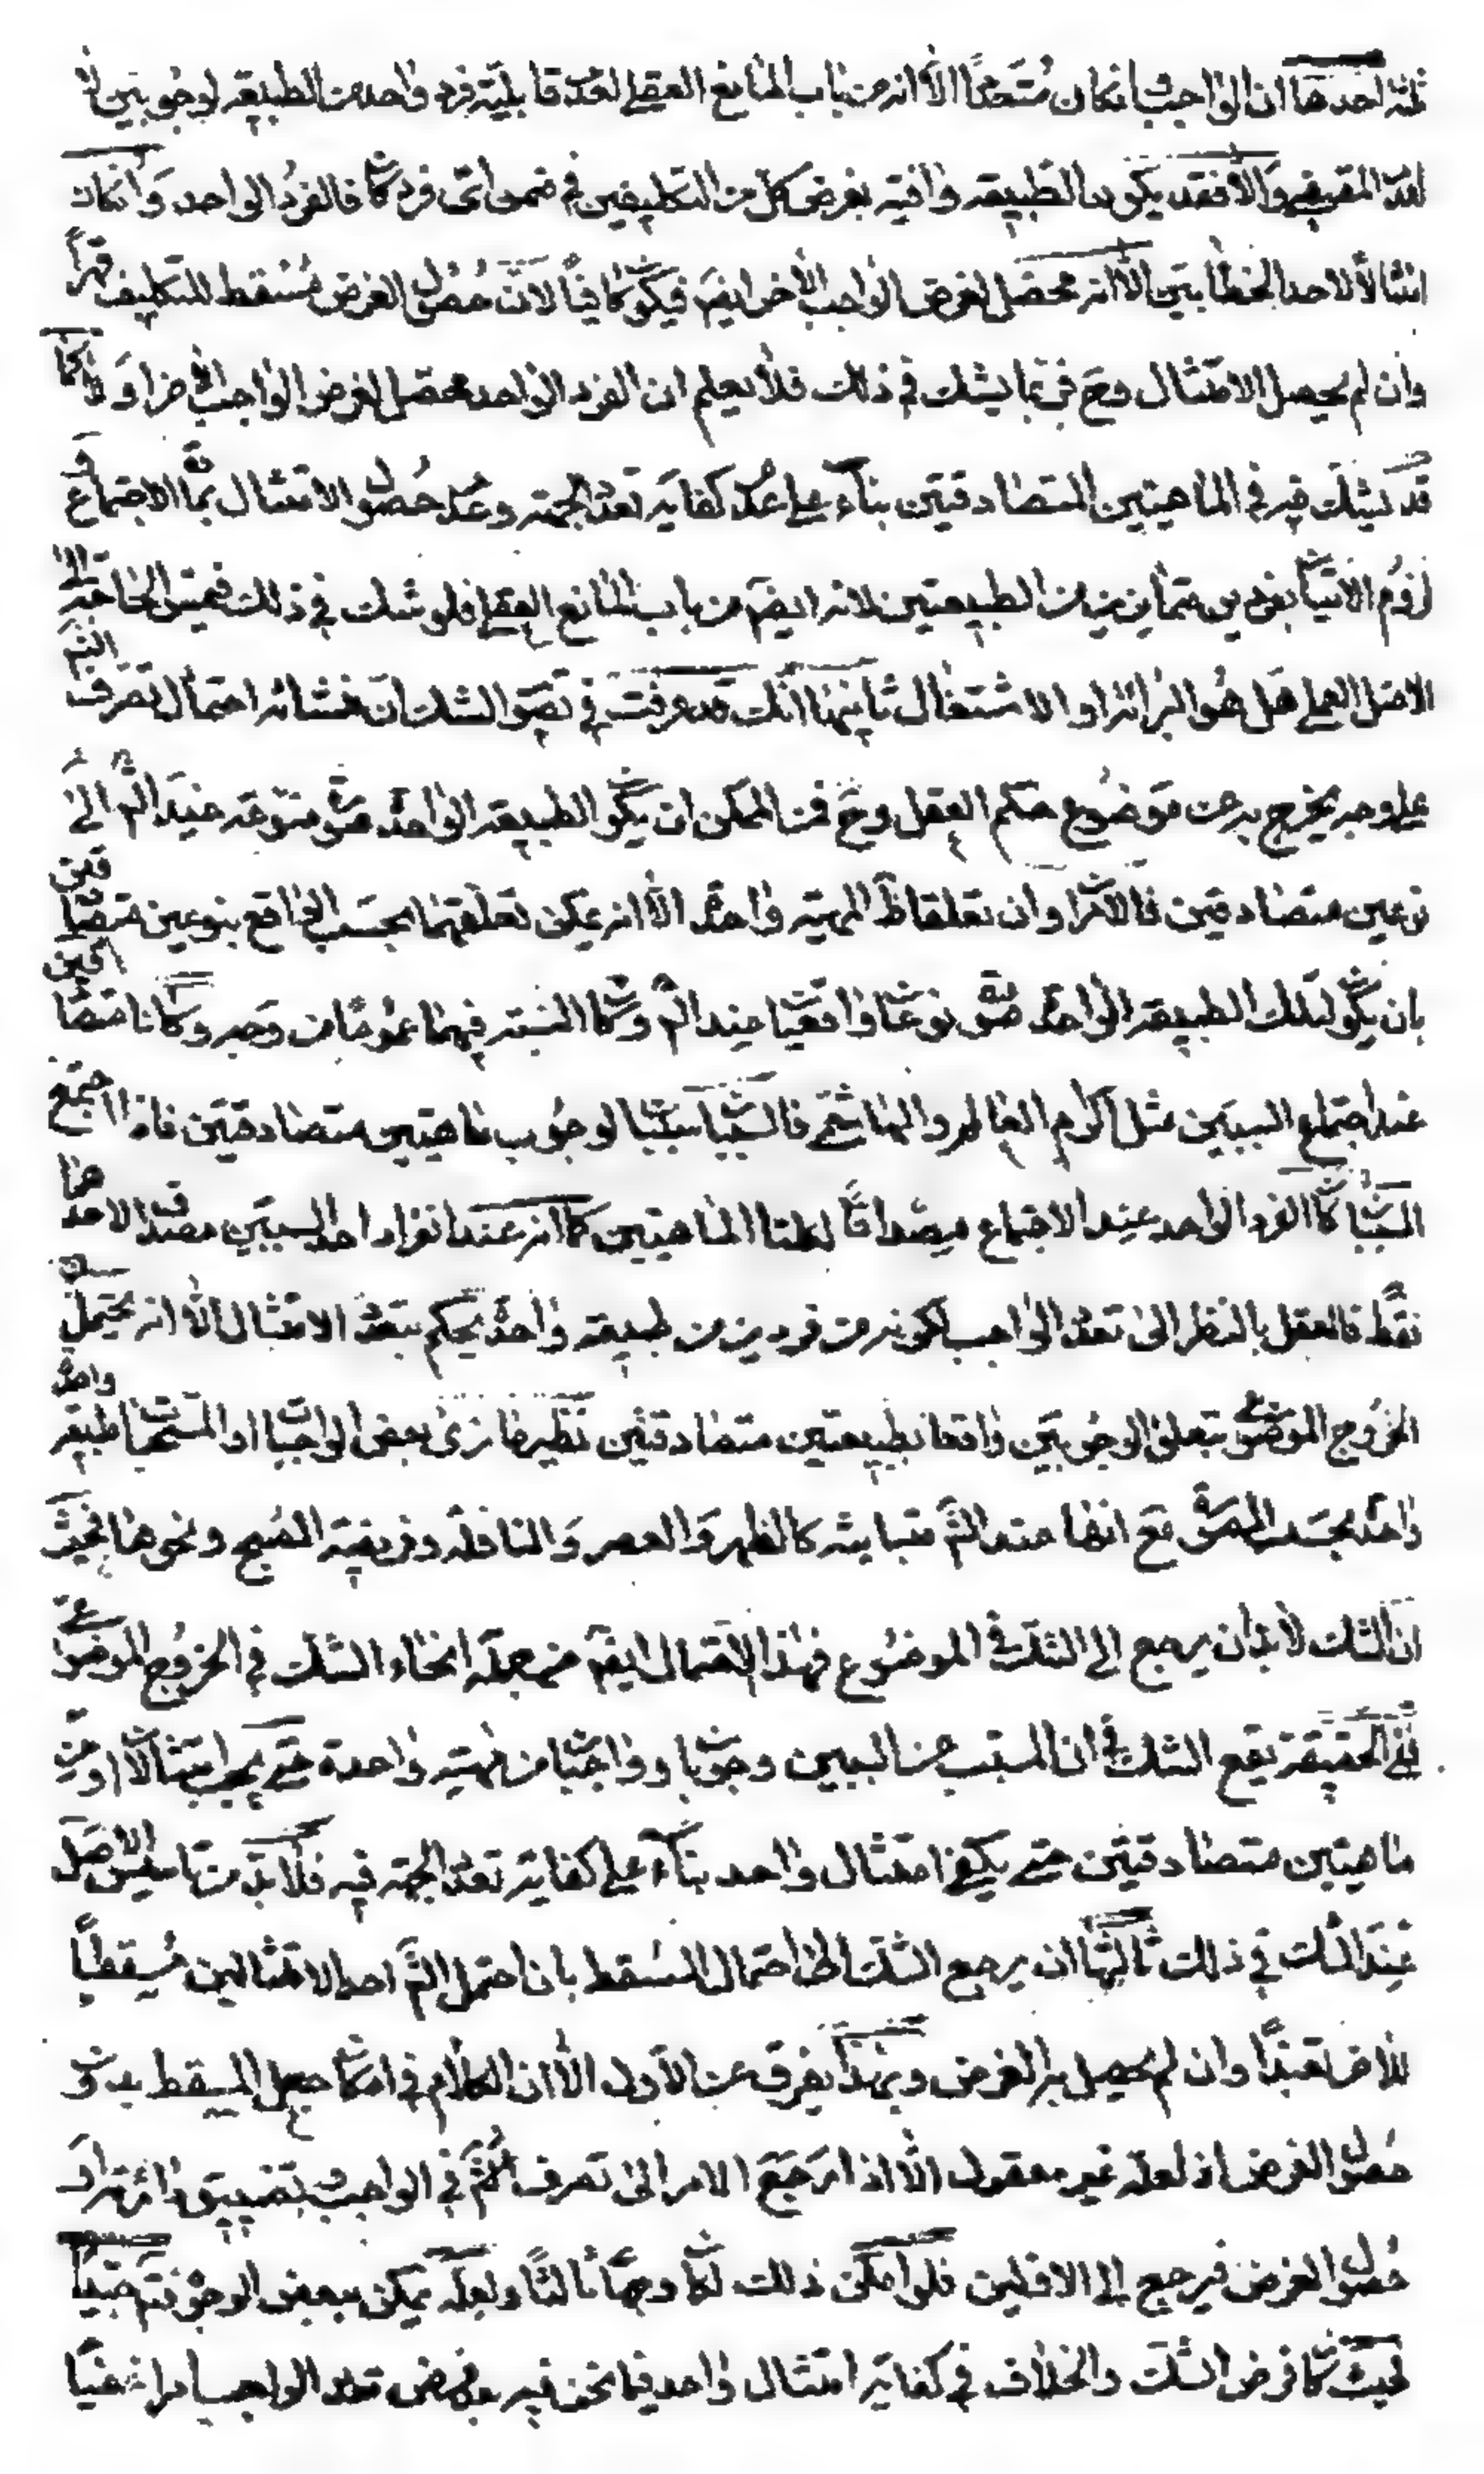 ثلثة احدها ان الواجب و انكان متعددا الا انه من باب المانع العقلى لعدم قابلية فرد واحد من الطبيعة لوجوبين
المقيقى والا فقد يكون الطبيعة وافية بغرض كل من التكليفين فى ضمن اى فرد كا فالفرد الواحد وانكان
امتثالا لاحد الخطابين الا انه محصل لغرض الواجب الاخر ايضم فيكون كافيا لان حصول الغرض مسقط للتكليف قهرا
وان لم يحصل الامتثال وح فربما يشك فى ذلك فلا يعلم ان الفرد الواحد محصل لغرض الواجب الاخر او لا كما
قد يشك فيه فى الماهيتين المتصادقتين بناء على عدم كفاية تعدد الجهة وعدم حصول الامتثال بمادة الاجتماع و
لزوم الاتيان بفردين متمايزين من الطبيعتين لانه ايضم من باب المانع العقلى فلو شك فى ذلك فيمس الحاجة الى
الاصل العملى هل هو البرائة او الاشتغال ثانيها انك قد عرفت فى تصوير الشك ان منشائه احتمال تصرف الشم
على وجه يخرج به عن موضوع حكم العقل وح فمن الممكن ان يكون الطبيعة الواحدة صورة متنوعة عند الشم الى
نوعين متصادقين فالامران وان تعلقا ظ بمهية واحدة الا انه يمكن تعلقهما بحسب الواقع بنوعين متصادقين
بان يكون لتلك الطبيعة الواحدة صورة نوعان واقعيان عند الشم وكان النسبة فيهما عموما من وجه وكانا متصادقين
عند اجتماع السببين مثل اكرام العالم والهاشمى فالسببان سببان لوجوب ماهيتين متصادقتين فاذا اجتمع
السببان كان الفرد الواحد عند الاجتماع مصداقا لهاتا الماهيتين كما انه عند انفراد احد السببين مصداق لاحدهما
فقط فالعقل بالنظر الى تعدد الواجب لكونه من فردين من طبيعة واحدة يحكم بتعدد الامتثال الا انه يحتمل
الخروج الموضوعى بتعلق الوجوبين واقعا بطبيعتين متصادقتين نظير ما نرى بعض الواجبات او المستحبات طبيعة واحدة
واحدة بحسب الصورة مع انها عند الشم متباينة كالظهر والعصر والنافلة وفريضة الصبح ونحوها بحيث
ان الشك لا بد ان يرجع الى الشك فى الموضوع فهذا الاحتمال ايضم من جملة انحاء الشك فى الخروج الموضوعى
ففى الحقيقة يقع الشك فى ان المسبب عن السببين وجوبان وواجبان من مهية واحدة حتى يجب امتثالان او من
ماهيتين متصادقتين حتى يكفى امتثال واحد بناء على كفاية تعدد الجهة فيه فلا بد من تاسيس الاصل
عند الشك فى ذلك ثالثها ان يرجع الشك الى احتمال المسقط بان احتمل الشم احد الامتثالين مسقطا
للاخر تعبدا وان لم يحصل به الغرض وبهذا يفرق عن الاول الا ان الكلام فى امكان جعل المسقط بدون
حصول الغرض اذ لعله غير معقول الا اذا رجع الامر الى تصرف الشم فى الواجب بتضييق دائرته او
حصول الغرض فيرجع الى الاولين فلو امكن ذلك لكان وجها ثالثا ولعله يمكن ببعض الوجوه فتم جيدا
بحيث كان فرض الشك والخلاف فى كفاية امتثال واحد فيما نحن فيه بفرض تعدد الواجب امرا